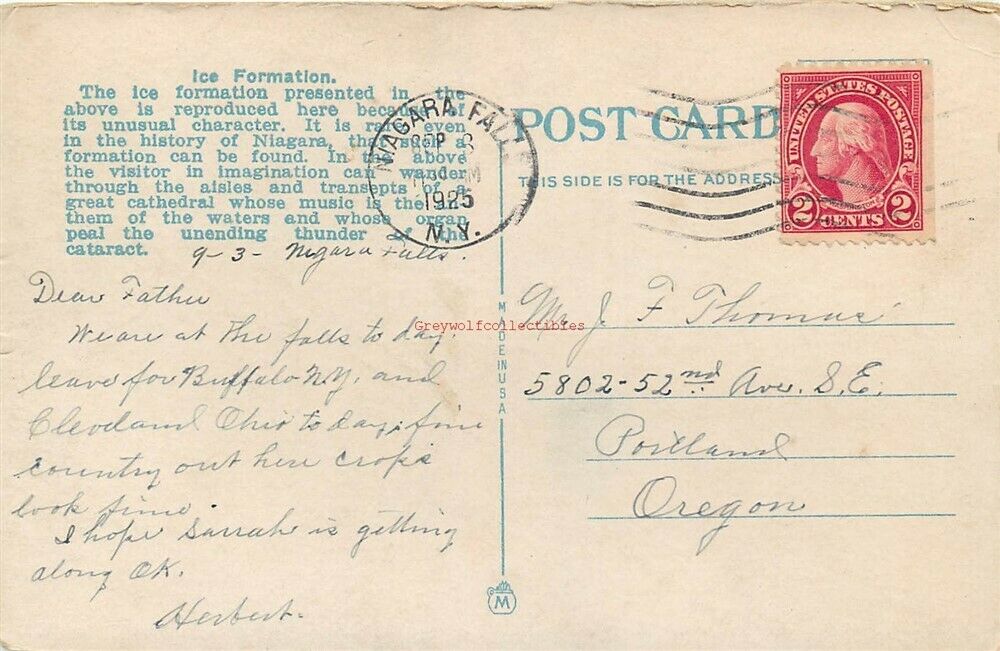 Ice Formation.
The ice formation presented in the
above is reproduced here because of
its unusual character. It is rare even
in the history of Niagara, that such a
formation can be found. In the above
the visitor in imagination can wander
through the aisles and transepts of a
great cathedral whose music is the
them of the waters and whose organ
peal the unending thunder of the
cataract.
9-3- Nigara Falls.
Dear Father
We are at the falls to day.
leave for Buffalo N.Y. and
Cleveland Ohio to day, fine
country out here crops
look fine.
I hope Sarrah is getting
along OK.
Herbert.
NIAGARA FALLS
SEP 3
M
1925
N.Y.
POST CARD
THIS SIDE IS FOR THE ADDRESS
UNITED STATES POSTAGE
WASHINGTON
2 CENTS 2
Mr J. F Thomas
5802-52nd Ave. S.E.
Portland
Oregon
MADE IN USA
M
Greywolfcollectibles